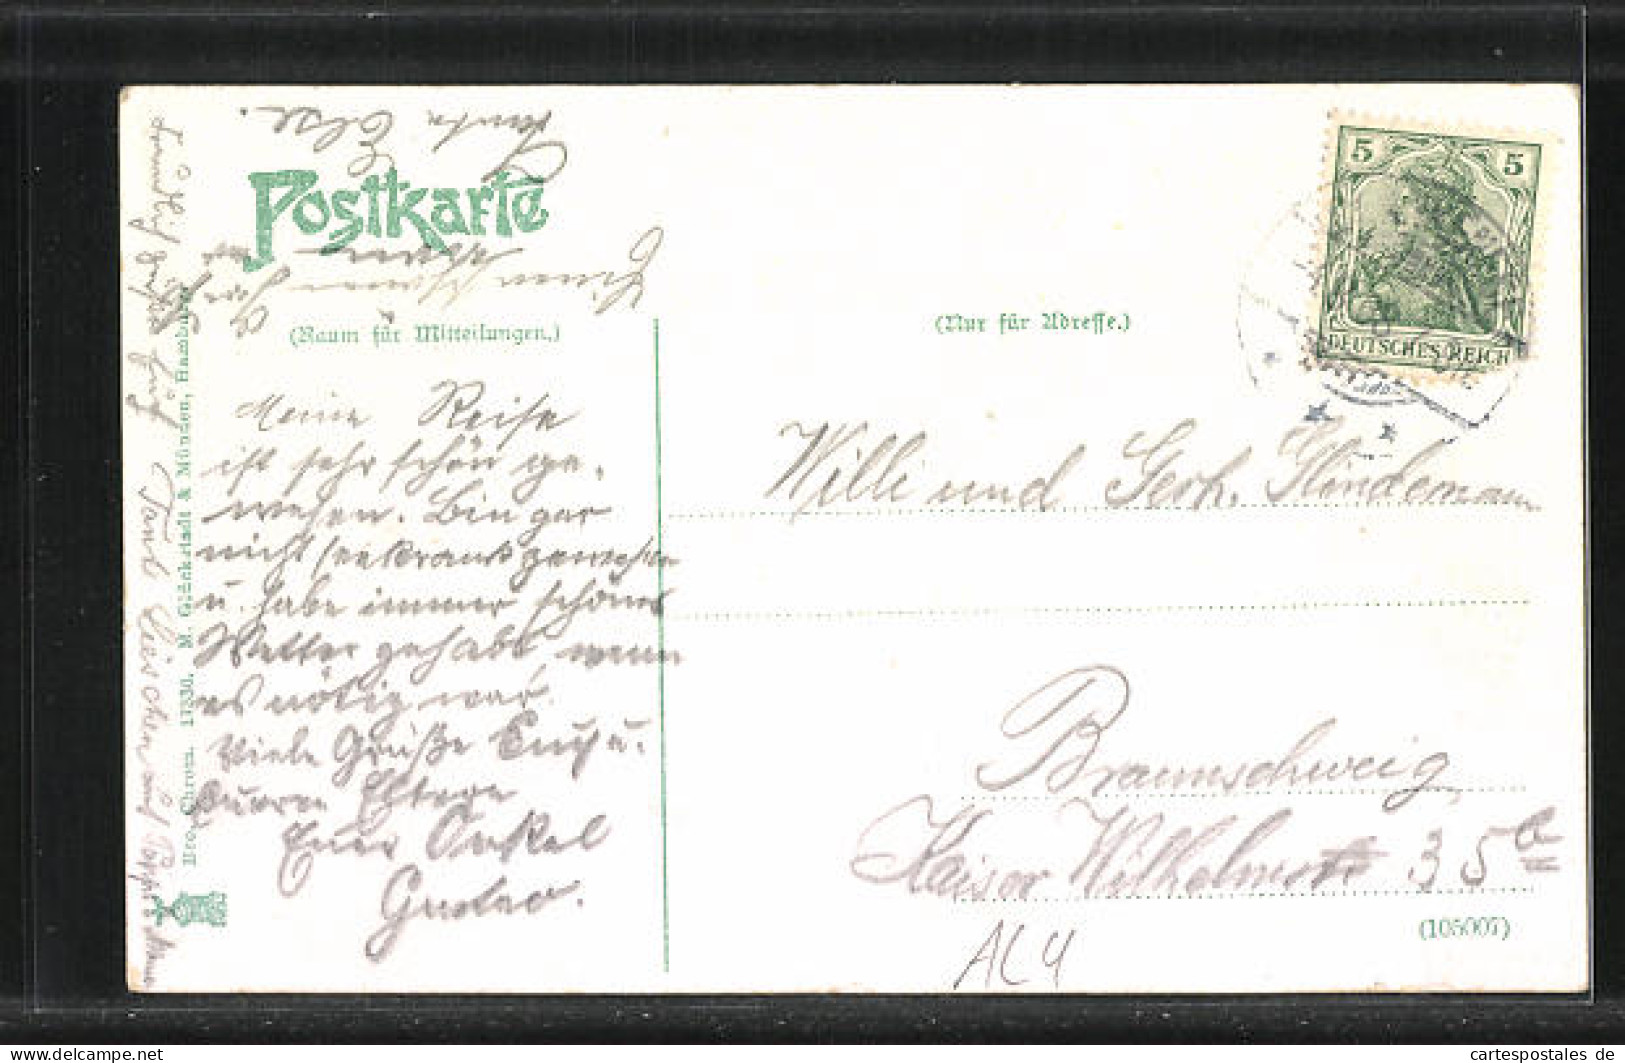 Tante Else.
Postkarte
Einen
(Raum für Mitteilungen.)
(Nur für Adresse.)
5 5
DEUTSCHES REICH
Meine Reise
ist sehr schön ge-
wesen. Bin gar
nicht seekrank gewesen
u. habe immer schönes
Wetter gehabt, wenn
es nötig war.
Viele Grüße Euch u.
Euern Eltern
Euer Onkel
Gustav.
Willi und Gerh. Glindemann
Braunschweig
Kaiser Wilhelmstr 35
(105007)
AL4
Neo-Chrom. 17330. M. Glückstadt & Münden, Hamburg
Tante Lieschen und
www.cartespostales.de
cartespostales de